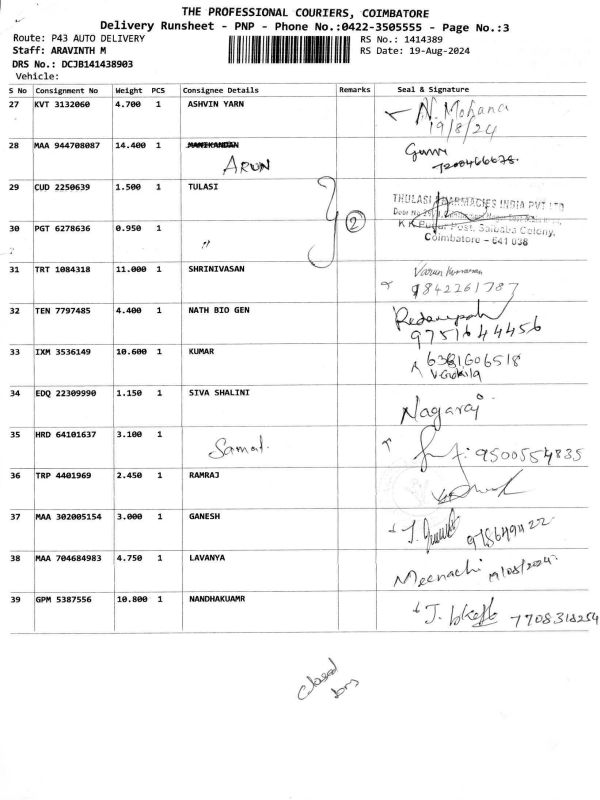 THE PROFESSIONAL COURIERS, COIMBATORE
Delivery Runsheet - PNP - Phone No.:0422-3505555 - Page No.:3
Route: P43 AUTO DELIVERY RS No.: 1414389
Staff: ARAVINTH M RS Date: 19-Aug-2024
DRS No.: DCJB141438903
Vehicle:
S No Consignment No Weight PCS Consignee Details Remarks Seal & Signature
27 KVT 3132060 4.700 1 ASHVIN YARN N. Mohana
19/8/24
28 MAA 944708087 14.400 1 MANIKANDAN
ARUN
29 CUD 2250639 1.500 1 TULASI THULASI PHARMACIES INDIA PVT LTD
2
K K Pudur Post, Saibaba Colony,
Coimbatore - 641 038
30 PGT 6278636 0.950 1 "
31 TRT 1084318 11.000 1 SHRINIVASAN
9842261787
32 TEN 7797485 4.400 1 NATH BIO GEN
9751644456
33 IXM 3536149 10.600 1 KUMAR 6381606518
V. Gokila
34 EDQ 22309990 1.150 1 SIVA SHALINI Nagaraj
35 HRD 64101637 3.100 1 9500554835
36 TRP 4401969 2.450 1 RAMRAJ
37 MAA 302005154 3.000 1 GANESH
38 MAA 704684983 4.750 1 LAVANYA Meenachi 19/08/2024
39 GPM 5387556 10.800 1 NANDHAKUAMR 7708318254
closed